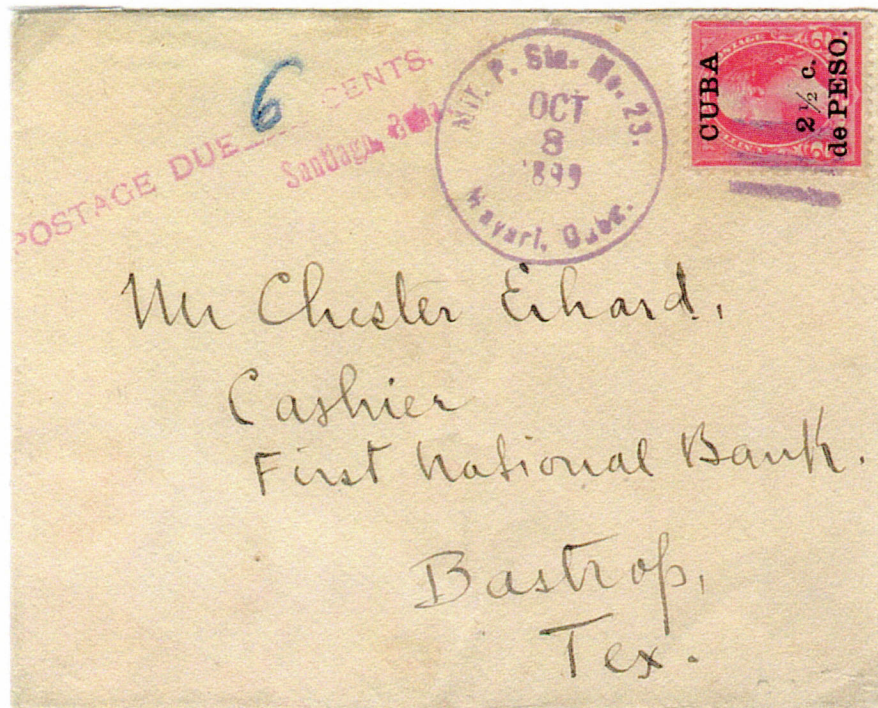 POSTAGE DUE 6 CENTS.
Santiago, Cuba
Mil. P. Sta. No. 23.
OCT
8
1899
Mayari, Cuba.
CUBA
2 1/2 c.
de PESO.
Mr Chester Erhard,
Cashier
First National Bank.
Bastrop,
Tex.